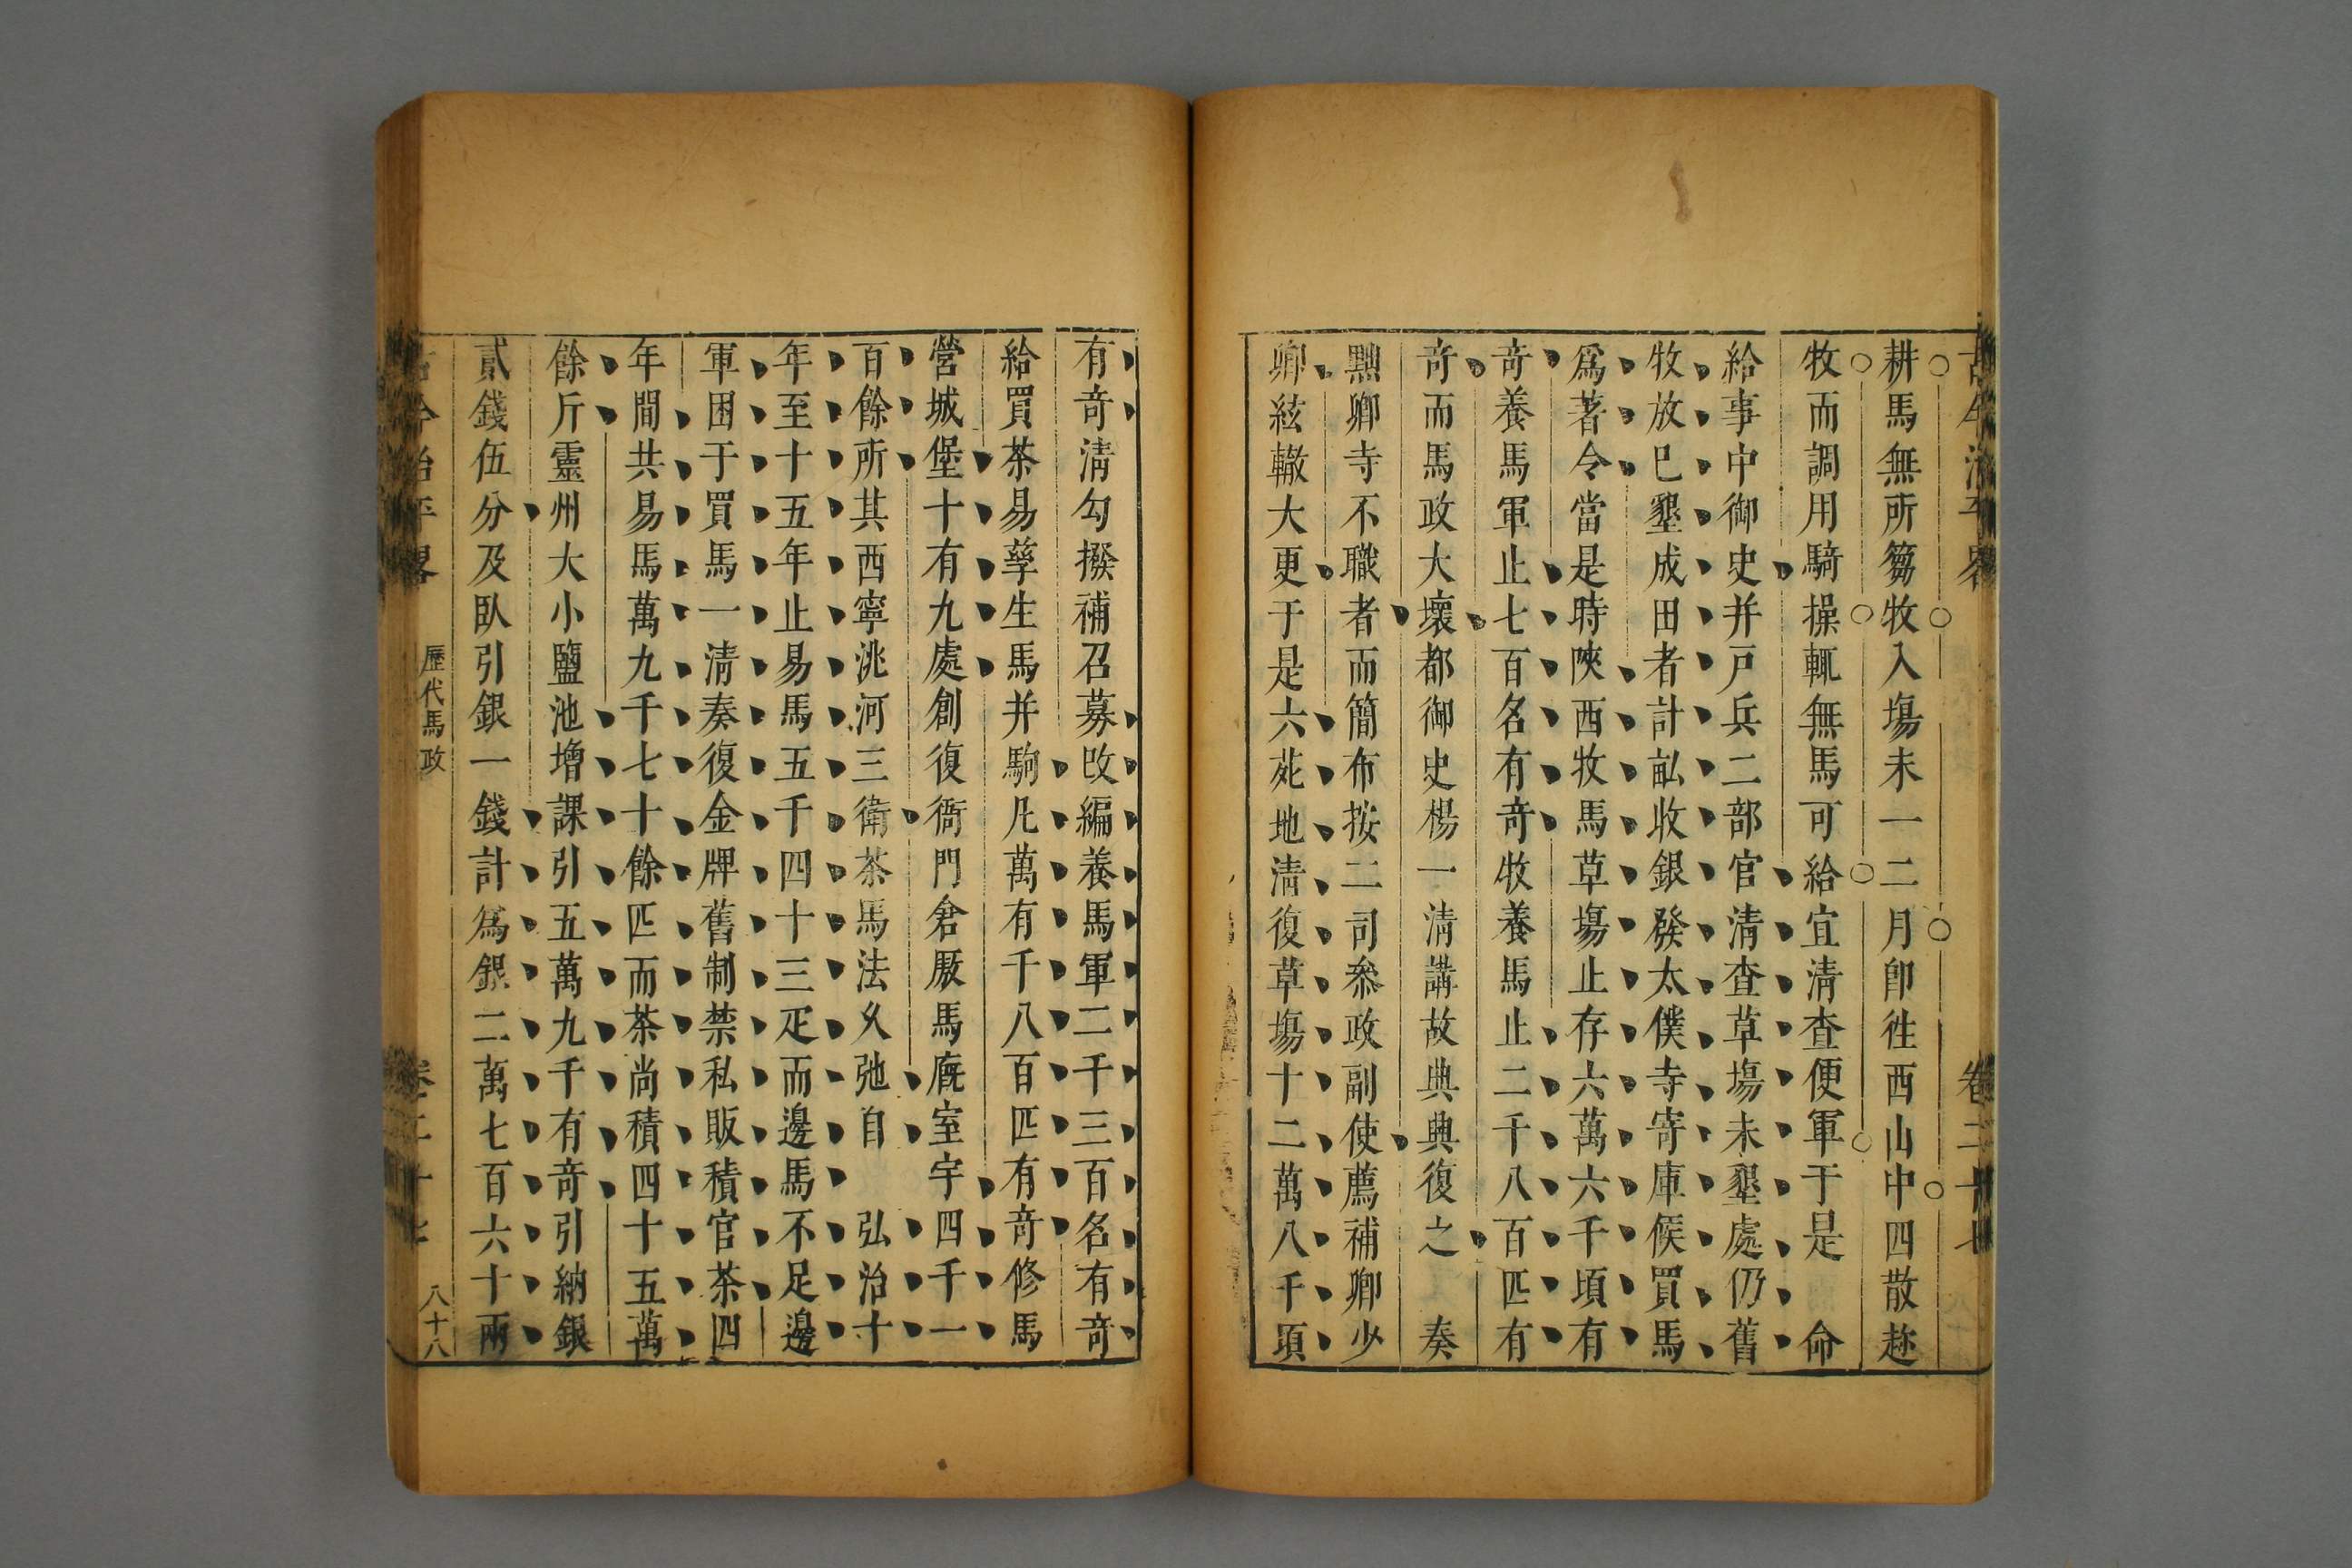 耕馬無所芻牧入塲未一二月卽徃西山中四散趂
牧而調用騎操輒無馬可給宜清查便軍于是 命
給事中御史并戸兵二部官清查草塲未墾處仍舊
牧放巳墾成田者計畝收銀發太僕寺寄庫候買馬
爲著令當是時陝西牧馬草塲止存六萬六千頃有
竒養馬軍止七百名有竒牧養馬止二千八百匹有
竒而馬政大壞都御史楊一清講故典興復之 奏
黜卿寺不職者而簡布按二司叅政副使薦補卿少
卿絃轍大更于是六苑地清復草塲十二萬八千頃
有竒清勾撥補召募改編養馬軍二千三百名有竒
給買茶易孳生馬并駒凡萬有千八百匹有竒修馬
營城堡十有九處創復衙門倉厫馬廐室宇四千一
百餘所其西寧洮河三衛茶馬法久弛自 弘治十
年至十五年止易馬五千四十三疋而邊馬不足邊
軍困于買馬一清奏復金牌舊制禁私販積官茶四
年間共易馬萬九千七十餘匹而茶尚積四十五萬
餘斤靈州大小鹽池增課引五萬九千有竒引納銀
貳錢伍分及臥引銀一錢計爲銀二萬七百六十兩
古今治平畧 歷代馬政 卷二十七 八十八